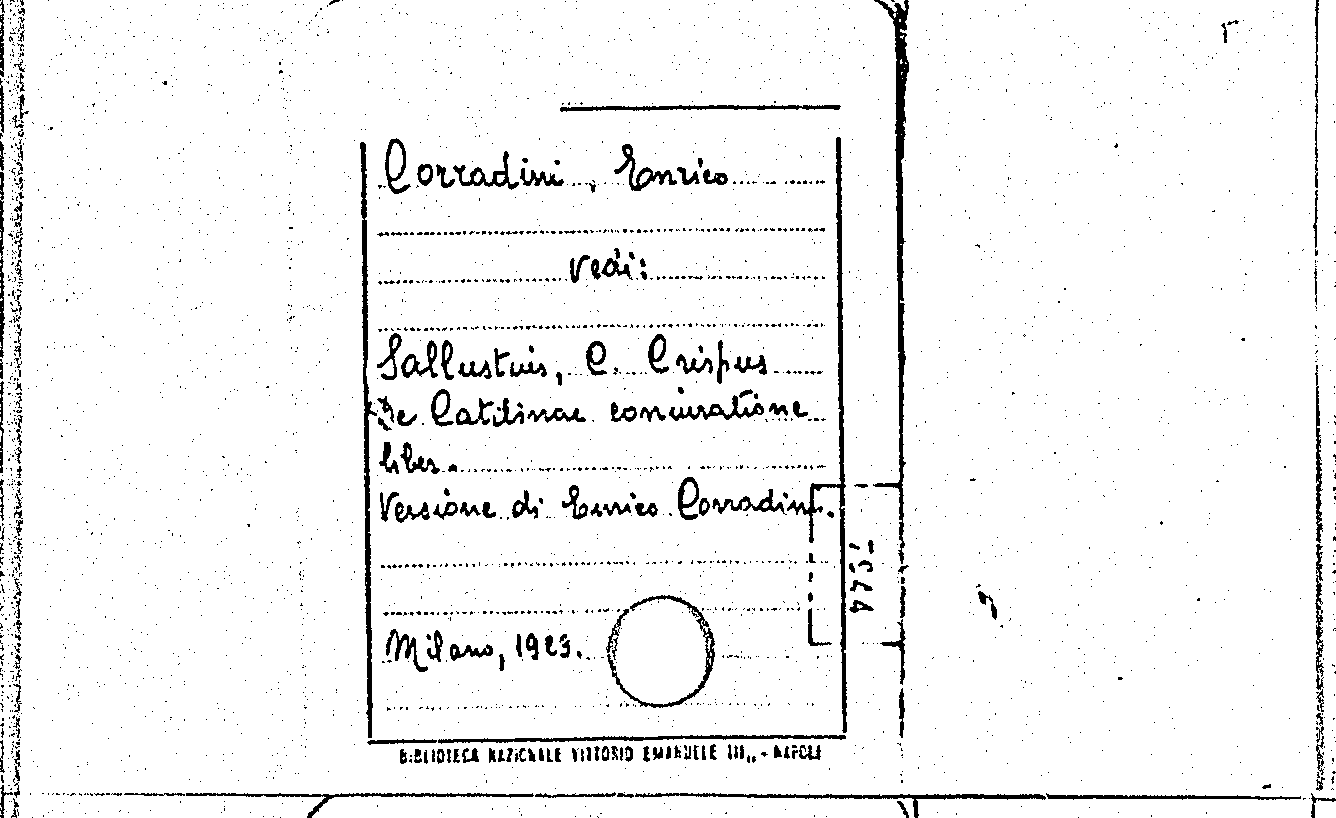 Corradini, Enrico
Vedi:
Sallustius, C. Crispus
De Catilinae coniuratione
liber.
Versione di Enrico Corradini.
Milano, 1923.
BIBLIOTECA NAZIONALE VITTORIO EMANUELE III,, - NAPOLI